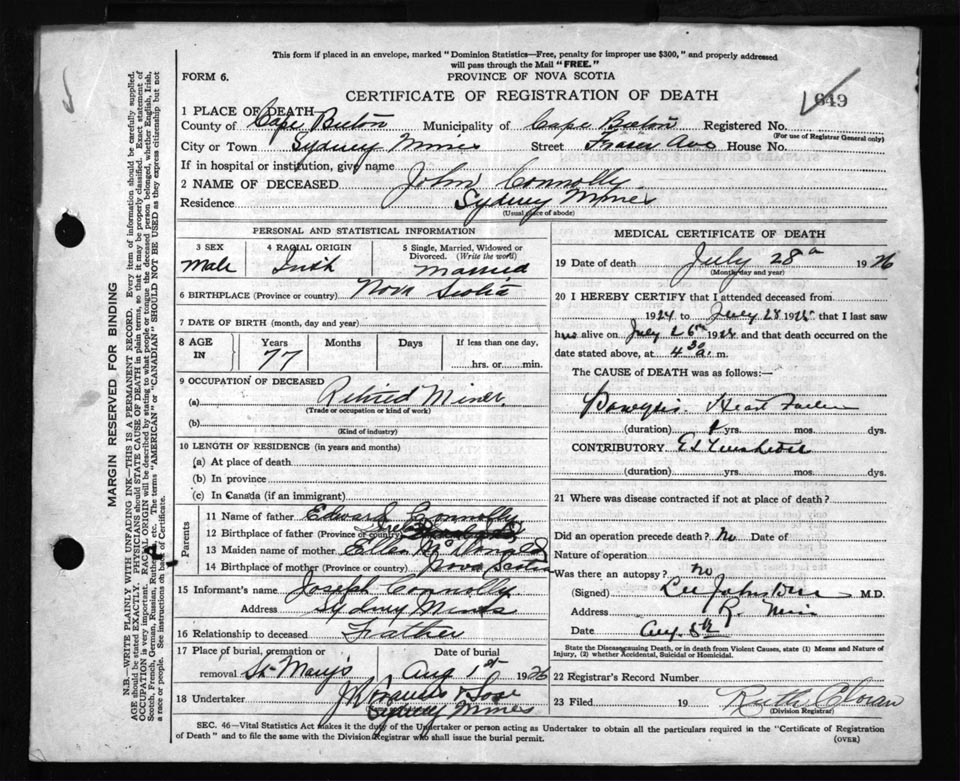 This form if placed in an envelope, marked "Dominion Statistics—Free, penalty for improper use $300," and properly addressed
will pass through the Mail "FREE."
FORM 6.
PROVINCE OF NOVA SCOTIA
CERTIFICATE OF REGISTRATION OF DEATH
649
1 PLACE OF DEATH
County of Cape Breton Municipality of Cape Breton Registered No.
(For use of Registrar General only)
City or Town Sydney Mines Street Fraser Ave House No.
If in hospital or institution, give name
2 NAME OF DECEASED John Connolly
Residence Sydney Mines
(Usual place of abode)
PERSONAL AND STATISTICAL INFORMATION
3 SEX 4 RACIAL ORIGIN 5 Single, Married, Widowed or Divorced. (Write the word)
Male Irish Married
6 BIRTHPLACE (Province or country) Nova Scotia
7 DATE OF BIRTH (month, day and year)
8 AGE IN Years Months Days If less than one day,
77 hrs. or min.
9 OCCUPATION OF DECEASED
(a) Retired Miner
(Trade or occupation or kind of work)
(b)
(Kind of industry)
10 LENGTH OF RESIDENCE (in years and months)
(a) At place of death
(b) In province
(c) In Canada (if an immigrant)
Parents
11 Name of father Edward Connolly
12 Birthplace of father (Province or country)
13 Maiden name of mother Ellen McDonald
14 Birthplace of mother (Province or country) Nova Scotia
15 Informant's name Joseph Connolly
Address Sydney Mines
16 Relationship to deceased Father
17 Place of burial, cremation or removal St. Mary's
Date of burial Aug 1st 1926
18 Undertaker
Sydney Mines
MEDICAL CERTIFICATE OF DEATH
19 Date of death July 28 1926
(Month, day and year)
20 I HEREBY CERTIFY that I attended deceased from
1924 to July 28 that I last saw
alive on July 26th and that death occurred on the
date stated above, at 4 a. m.
The CAUSE of DEATH was as follows:—
Heart Failure
(duration) yrs. mos. dys.
CONTRIBUTORY
(duration) yrs. mos. dys.
21 Where was disease contracted if not at place of death?
Did an operation precede death? No Date of
Nature of operation
Was there an autopsy? no
(Signed) M.D.
Address
Date Aug. 5th
State the Disease causing Death, or in death from Violent Causes, state (1) Means and Nature of Injury, (2) whether Accidental, Suicidal or Homicidal.
22 Registrar's Record Number
23 Filed 19
(Division Registrar)
SEC. 46—Vital Statistics Act makes it the duty of the Undertaker or person acting as Undertaker to obtain all the particulars required in the "Certificate of Registration
of Death" and to file the same with the Division Registrar who shall issue the burial permit. (OVER)
MARGIN RESERVED FOR BINDING
N.B.—WRITE PLAINLY WITH UNFADING INK—THIS IS A PERMANENT RECORD. Every item of information should be carefully supplied.
AGE should be stated EXACTLY. PHYSICIANS should STATE CAUSE OF DEATH in plain terms, so that it may be properly classified. Exact statement of
OCCUPATION is very important. RACIAL ORIGIN will be described by stating to what people or tongue the deceased person belonged, whether English, Irish,
Scotch, French, German, Russian, Ruthenian, etc. The terms "AMERICAN" or "CANADIAN" SHOULD NOT BE USED as they express citizenship but not
a race or people. See instructions on back of Certificate.